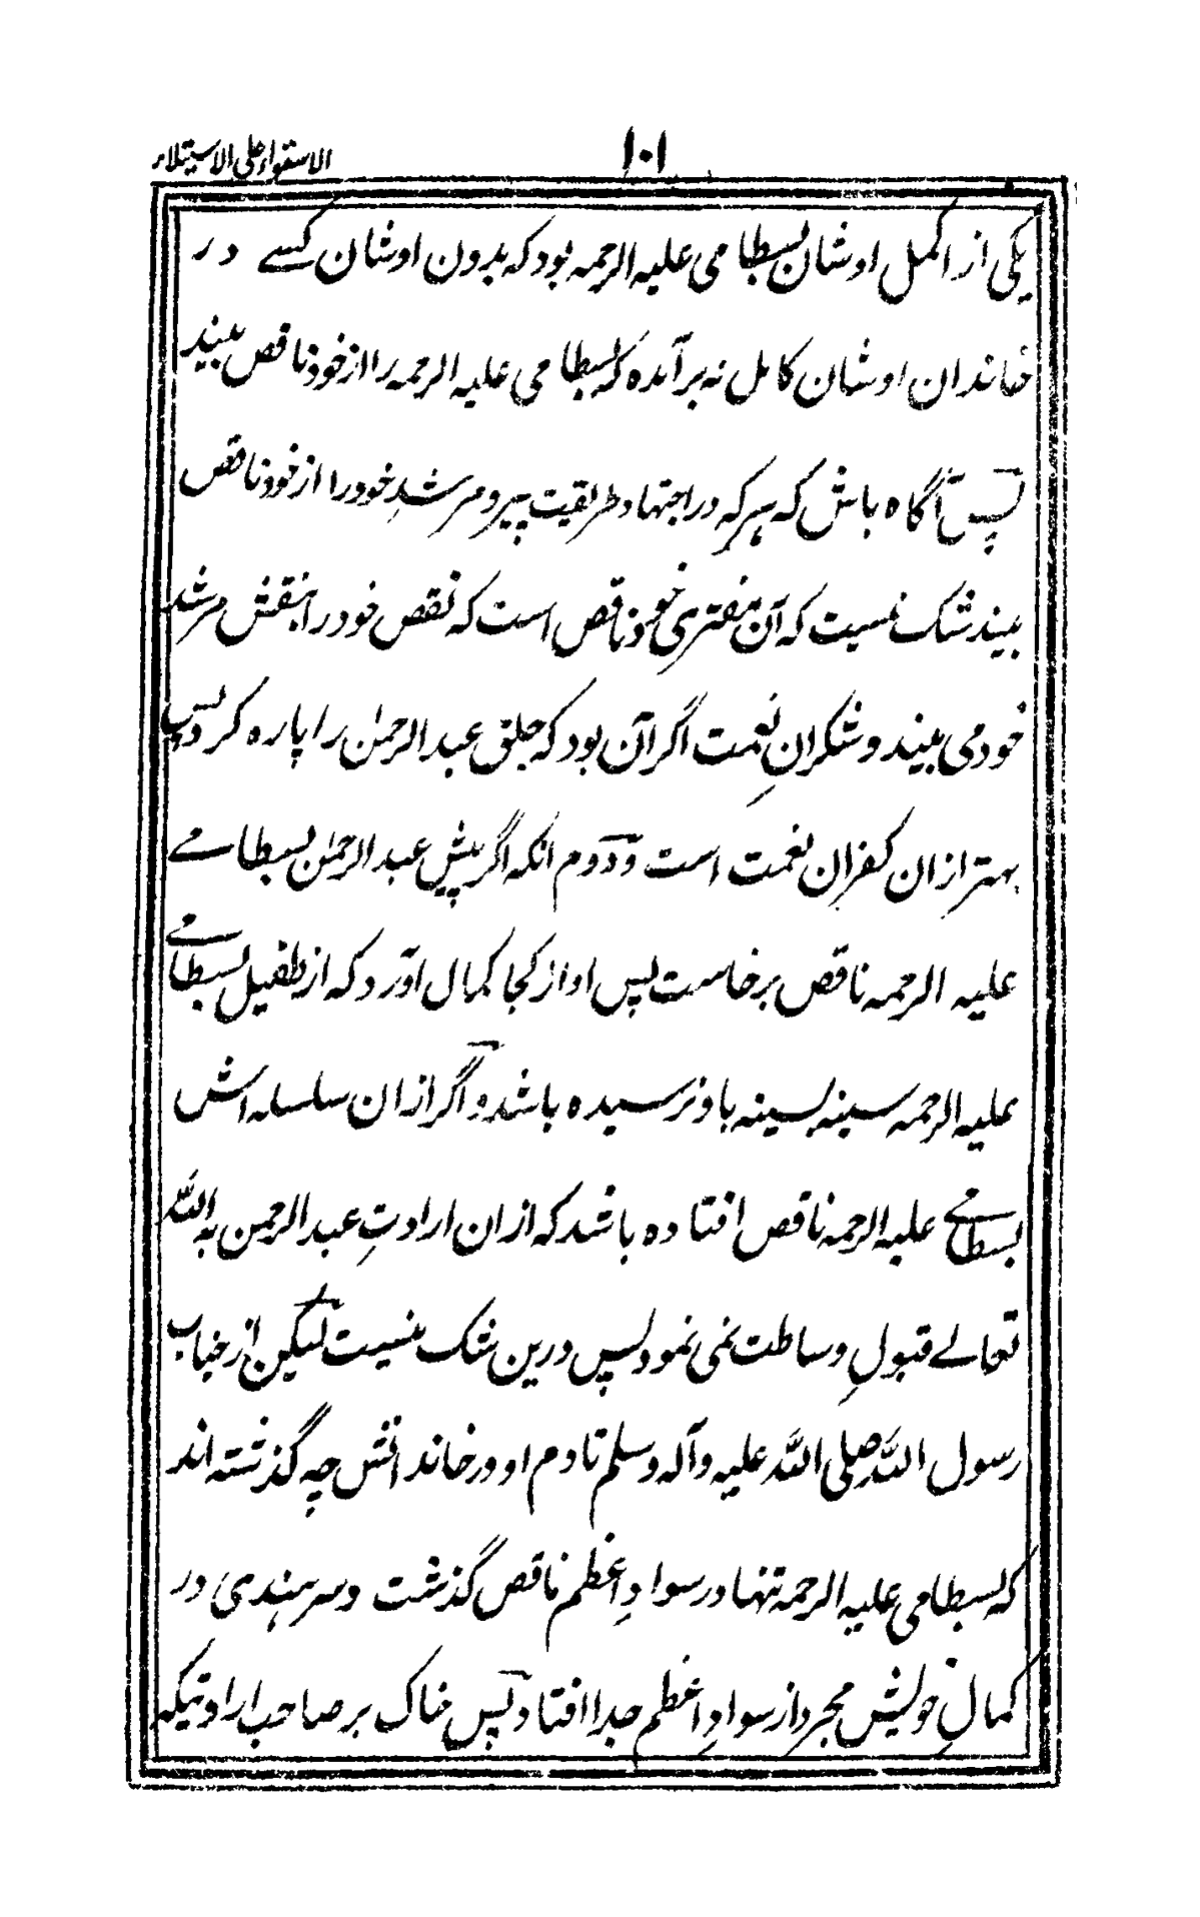 ۱۰۱
الاستواء علی الاستیلاء
یکی از اکمل اوشان بسطامی علیه الرحمه بود که بدون اوشان کسے در
خاندان اوشان کامل نه برآمده که بسطامی علیه الرحمه را از خود ناقص بیند
پس آگاه باش که هر که در اجتهاد طریقیت پیر و مرشدِ خود را از خود ناقص
بیند شک نیست که آن مفتری خود ناقص است که نقص خود را بنقش مرشد
خود می بیند و شکرانِ نعمت اگر آن بود که حلق عبد الرحمٰن را پاره کرد پس
بهتر ازان کفرانِ نعمت است و دوم انکه اگر پیش عبد الرحمٰن بسطامے
علیه الرحمه ناقص برخاست پس او از کجا کمال آورد که از طفیل بسطامے
علیه الرحمه سینه بسینه باو نرسیده باشد و اگر ازان سلسله اش
بسطامے علیه الرحمه ناقص افتاده باشد که ازان ارادتِ عبد الرحمن به الله
تعالے قبولِ وساطت نمی نمود پس درین شک نیست لیکن از جناب
رسول الله صلی الله علیه وآله وسلم تا دم او در خاندانش چه گذشته اند
که بسطامی علیه الرحمه تنها در سوادِ اعظم ناقص گذشت و سرهندی در
کمالِ خویش مجرد از سوادِ اعظم جدا افتاد پس خاک بر صاحب ارادتیکه